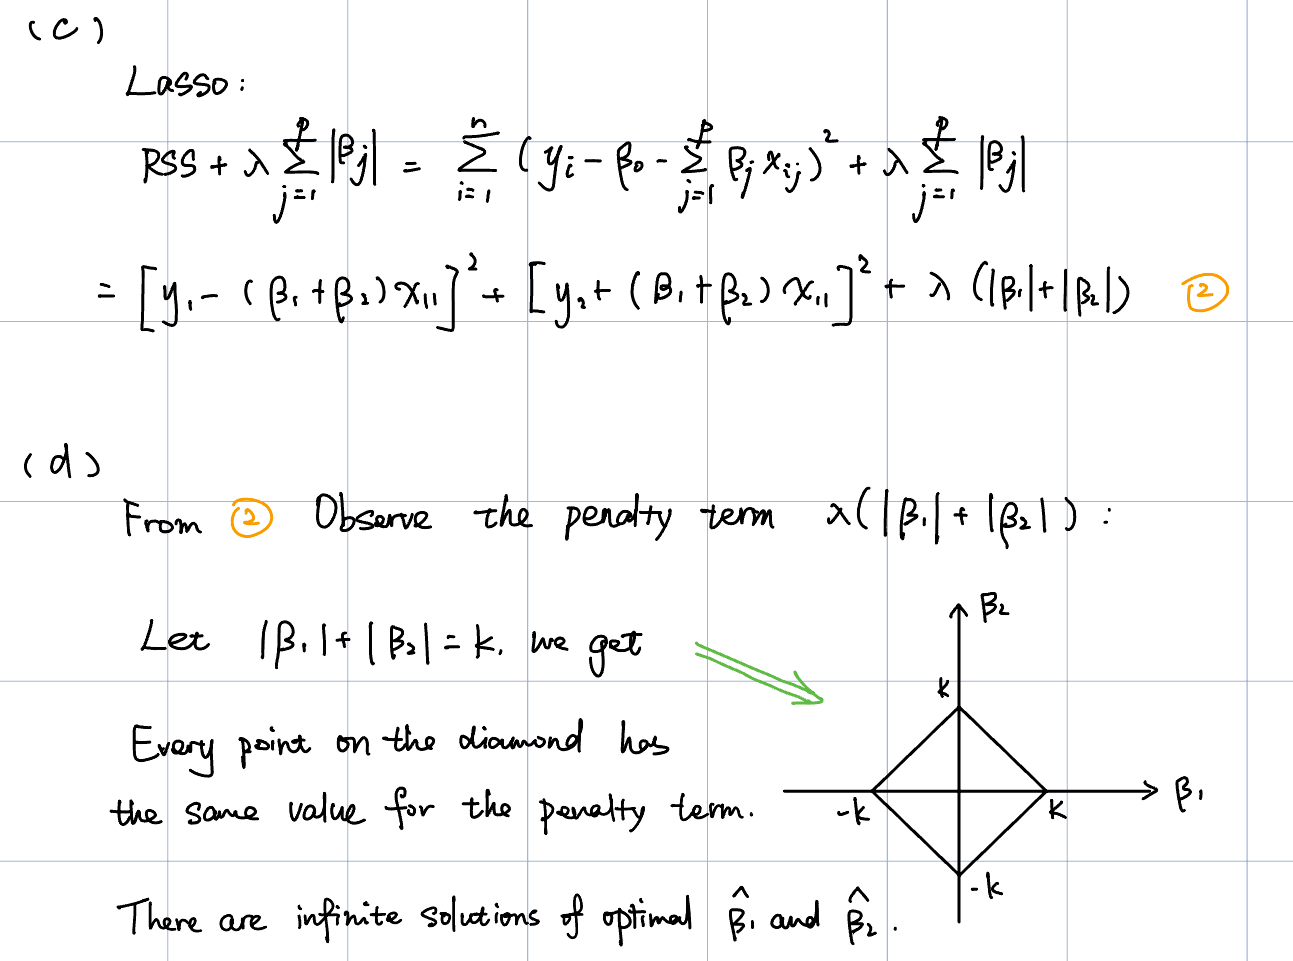 (c)
Lasso:
RSS + λ ∑_{j=1}^{p} |β_j| = ∑_{i=1}^{n} (y_i - β_0 - ∑_{j=1}^{p} β_j x_{ij})^2 + λ ∑_{j=1}^{p} |β_j|
= [y_1 - (β_1 + β_2) x_{11}]^2 + [y_2 + (β_1 + β_2) x_{11}]^2 + λ (|β_1| + |β_2|) ②
(d)
From ② Observe the penalty term λ(|β_1| + |β_2|) :
Let |β_1| + |β_2| = k. we get
Every point on the diamond has
the same value for the penalty term.
There are infinite solutions of optimal β̂_1 and β̂_2 .
β_2
k
-k
k
β_1
-k